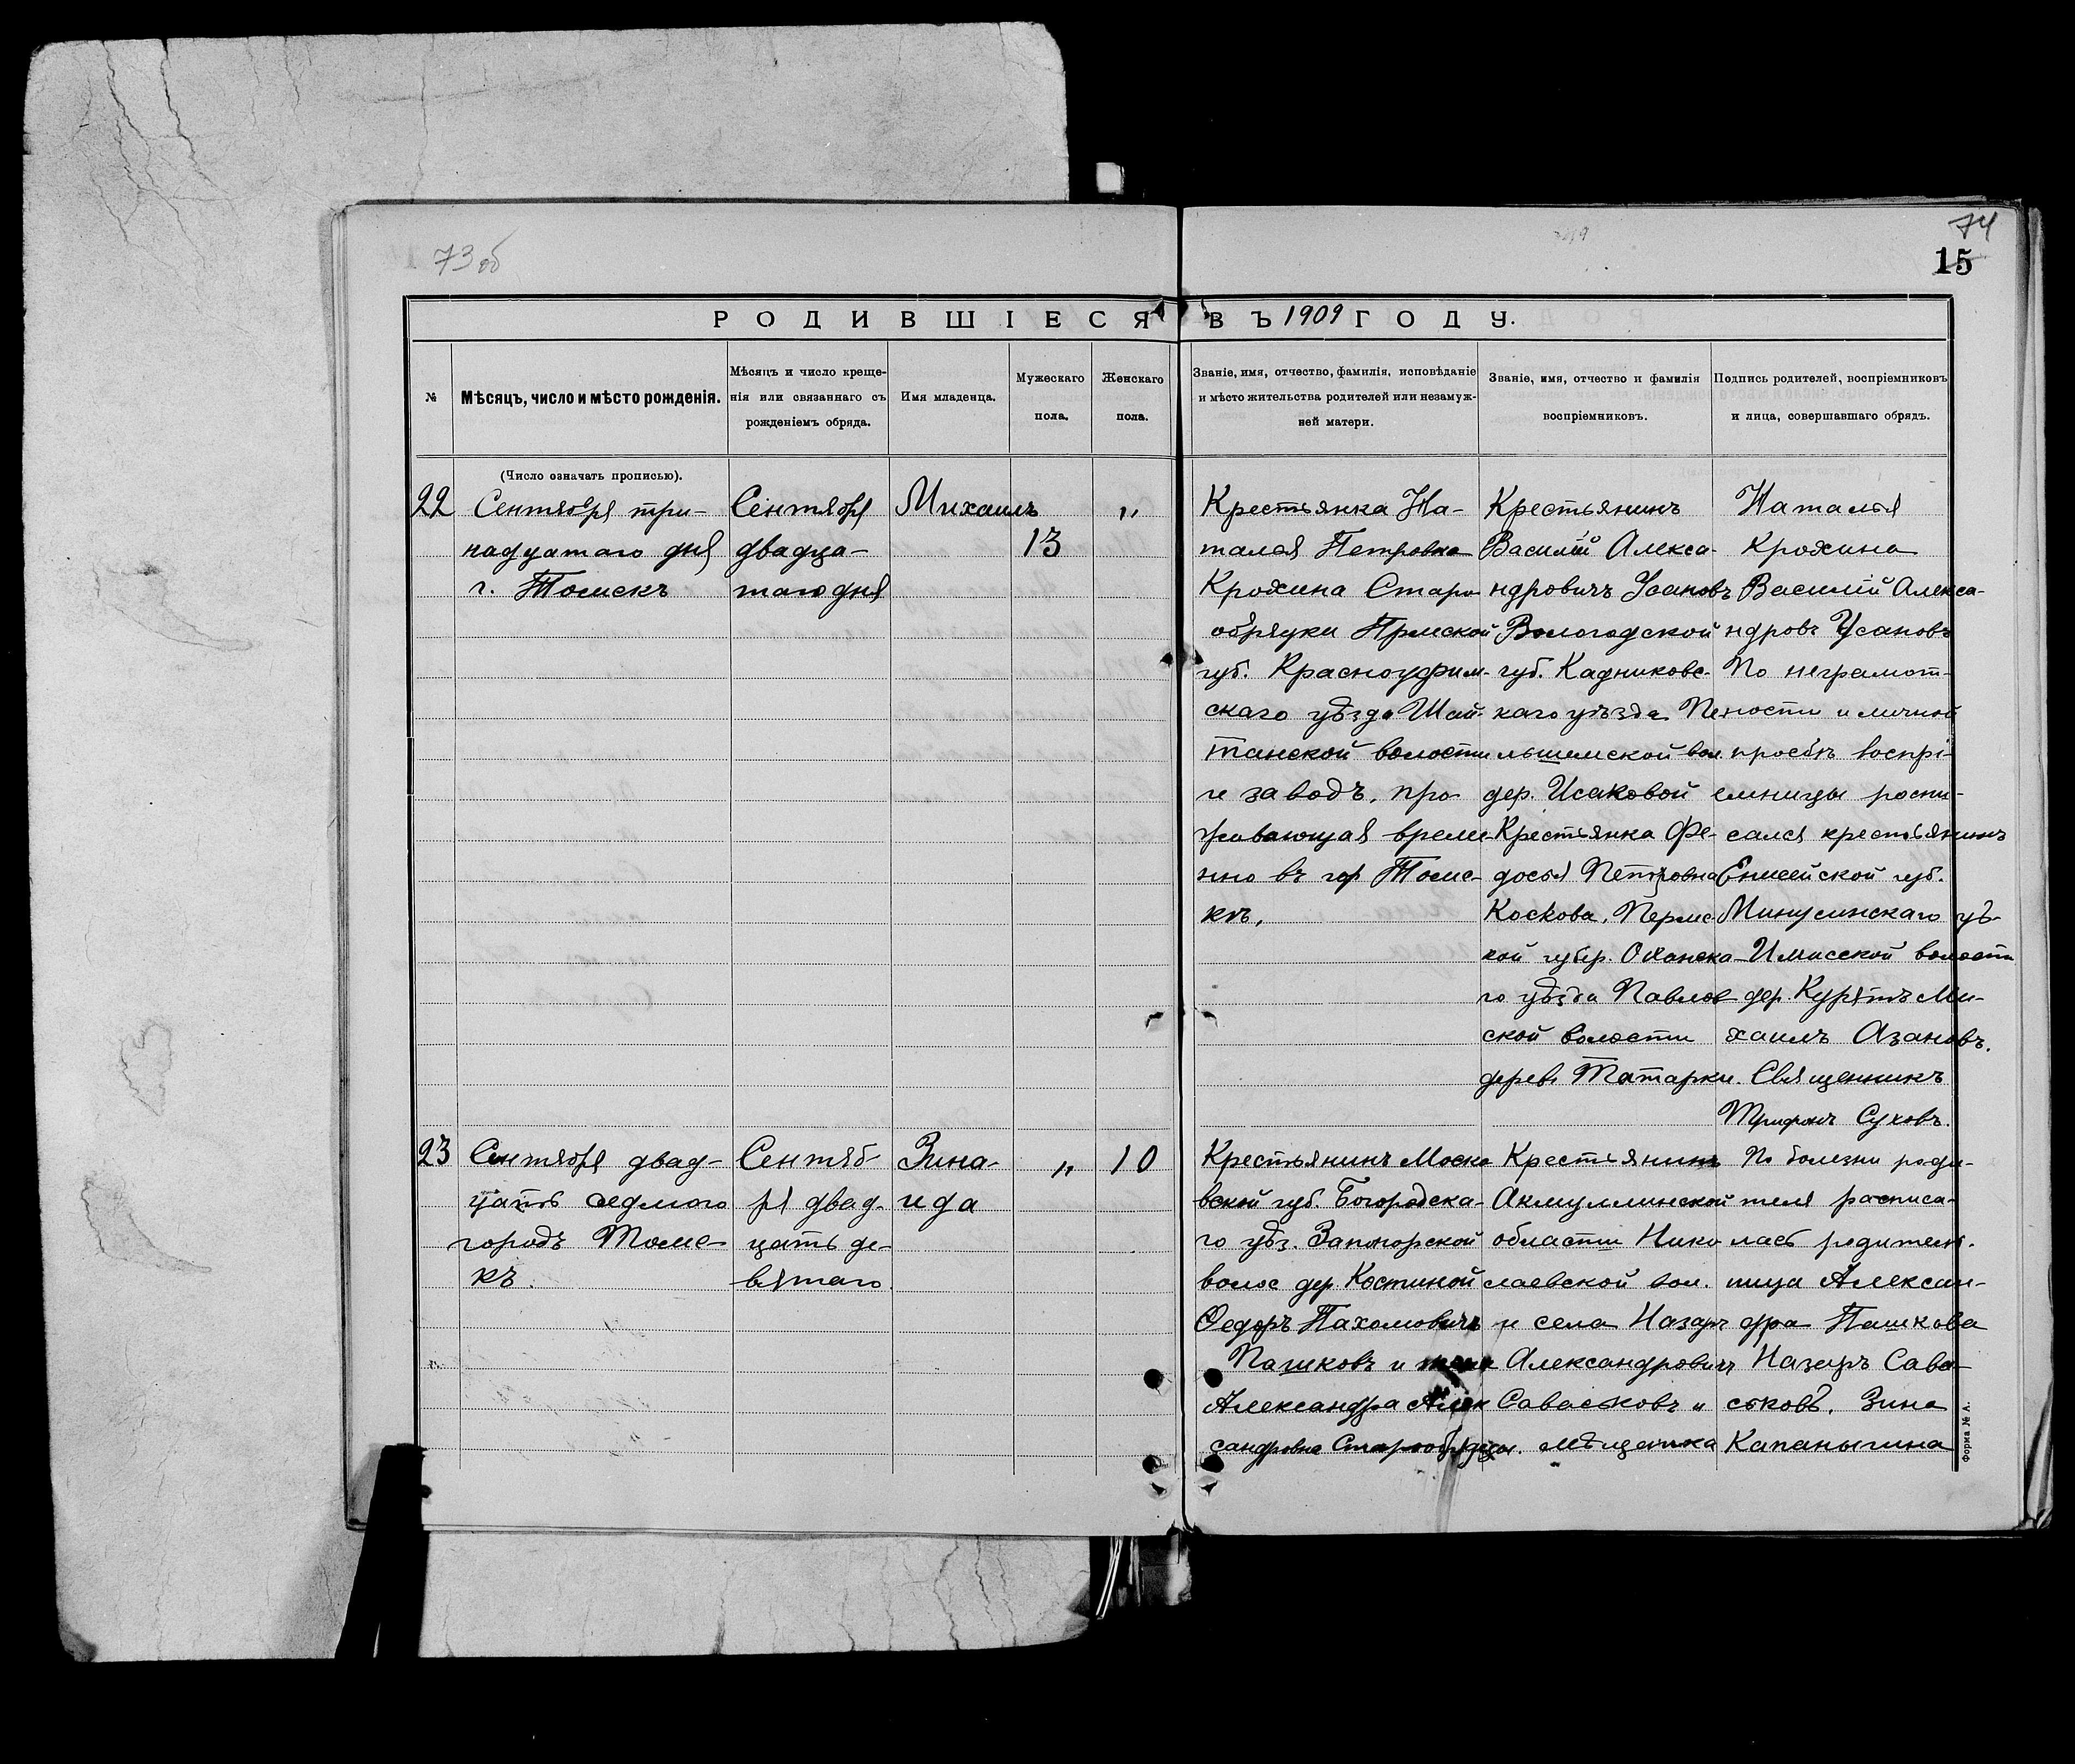 73 об
74
15
РОДИВШІЕСЯ ВЪ 1909 ГОДУ.
№
Мѣсяцъ, число и мѣсто рожденія.
Мѣсяцъ и число креще-
нія или связаннаго съ
рожденіемъ обряда.
Имя младенца.
Мужескаго
пола.
Женскаго
пола.
Званіе, имя, отчество, фамилія, исповѣданіе
и мѣсто жительства родителей или незамуж-
ней матери.
Званіе, имя, отчество и фамилія
воспріемниковъ.
Подпись родителей, воспріемниковъ
и лица, совершавшаго обрядъ.
(Число означать прописью).
22
Сентября три-
надцатаго дня
г. Томскъ
Сентября
двадца-
таго дня
Михаилъ
13
„
Крестьянка На-
талья Петровна
Крохина Старо-
обрядки Прмской
губ. Красноуфим-
скаго уѣзда Шай-
танской волости
и заводъ, про-
живающая време-
нно въ гор Томс-
кѣ,
Крестьянинъ
Василій Алекса-
ндровичъ Усановъ
Вологодской
губ. Кадниковс-
каго уѣзда Пе-
льшемской вол.
дер. Исаковой
Крестьянка Фе-
досья Петровна
Коскова, Пермс-
кой губер. Оханска-
го уѣзда Павлов
ской волости
дерев. Татарки.
Наталья
Крохина
Василій Алекса-
ндровъ Усановъ
По неграмот-
ности и личной
просбѣ воспрі-
емницы роспи-
сался крестьянинъ
Енисейской губ.
Минусинскаго уѣ-
Имисской волости
дер. Курятъ Ми-
хаилъ Азановъ.
Священникъ
Трифонъ Суховъ.
23
Сентября двад-
цать седмого
городъ Томс-
къ.
Сентяб-
ря двад-
цать де-
вятаго
Зина-
ида
„
10
Крестьянинъ Моско
вской губ. Богородска-
го уѣз. Запонорской
волос дер. Костиной
Федоръ Пахомовичъ
Пашковъ и жена
Александра Алек
сандровна Старообрядцы.
Крестьянинъ
Акмуллинской
области Нико
лаевской вол.
и села Назаръ
Александровичъ
Саваськовъ и
мѣщанка
По болезни роди-
теля расписа-
лась родитель-
ница Алексан-
дра Пашкова
Назаръ Сава-
ськовъ. Зина
Капаныгина
Форма № А.